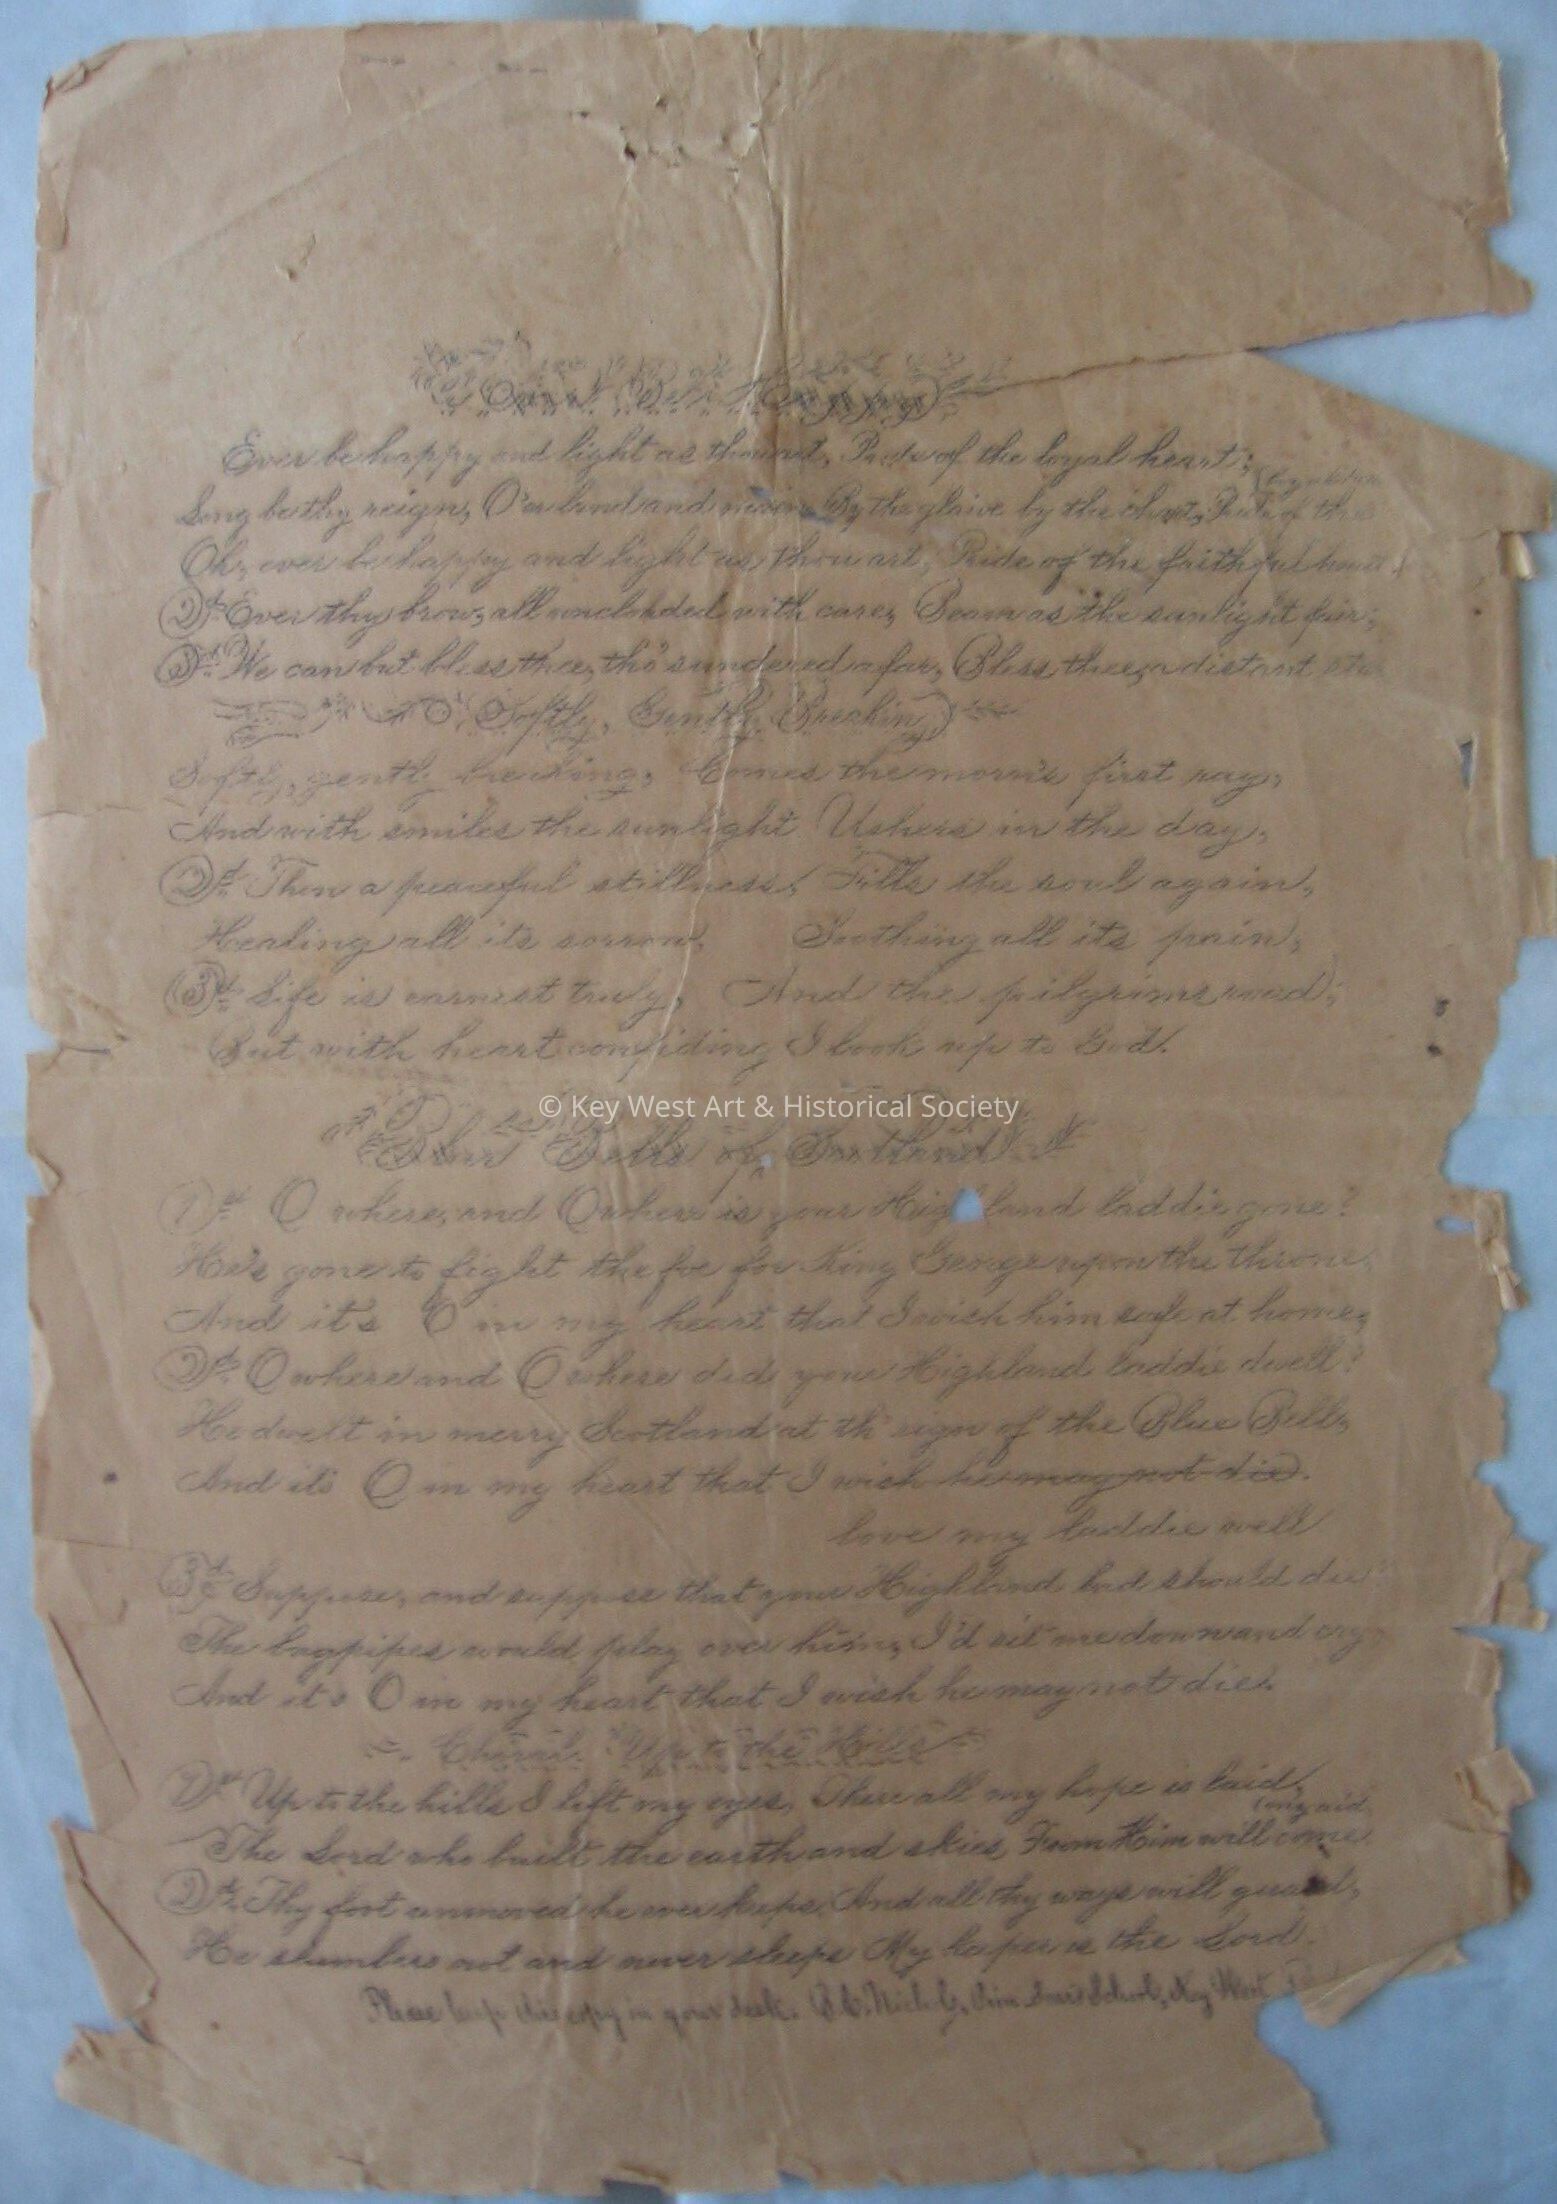 Ever Be Happy
Ever be happy and light as thou art, Pride of the loyal heart;
Long be thy reign, O'er land and main, By the glaive by the chart, Pride of the
Oh, ever be happy and light as thou art, Pride of the faithful heart
2d. Ever thy brow, all unclouded with care, Beam as the sunlight fair;
3d. We can but bless thee, tho' sundered afar, Bless thee, a distant
Softly, Gently Breaking
Softly, gently breaking, Comes the morn's first ray,
And with smiles the sunlight Ushers in the day,
2d. Then a peaceful stillness, Fills the soul again,
Healing all its sorrow, Soothing all its pain,
3d. Life is earnest truly, And the pilgrims road;
But with heart confiding I look up to God.
© Key West Art & Historical Society
Blue Bells of Scotland
1st O where, and O where is your Highland laddie gone?
He's gone to fight the foe for King George upon the throne,
And it's O in my heart that I wish him safe at home,
2d. O where and O where did your Highland laddie dwell?
He dwelt in merry Scotland at th' sign of the Blue Bell,
And its O in my heart that I wish he may not die.
love my laddie well
3d. Suppose, and suppose that your Highland lad should die
The bagpipes would play over him, I'd sit me down and cry
And it's O in my heart that I wish he may not die.
Choral. Up to the Hills
1st Up to the hills I lift my eyes, There all my hope is laid,
(my aid
The Lord who built the earth and skies, From Him will come
2d. Thy foot unmoved he ever keeps, And all thy ways will guard,
He slumbers not and never sleeps My keeper is the Lord.
Please keep this copy in your desk. School, Key West